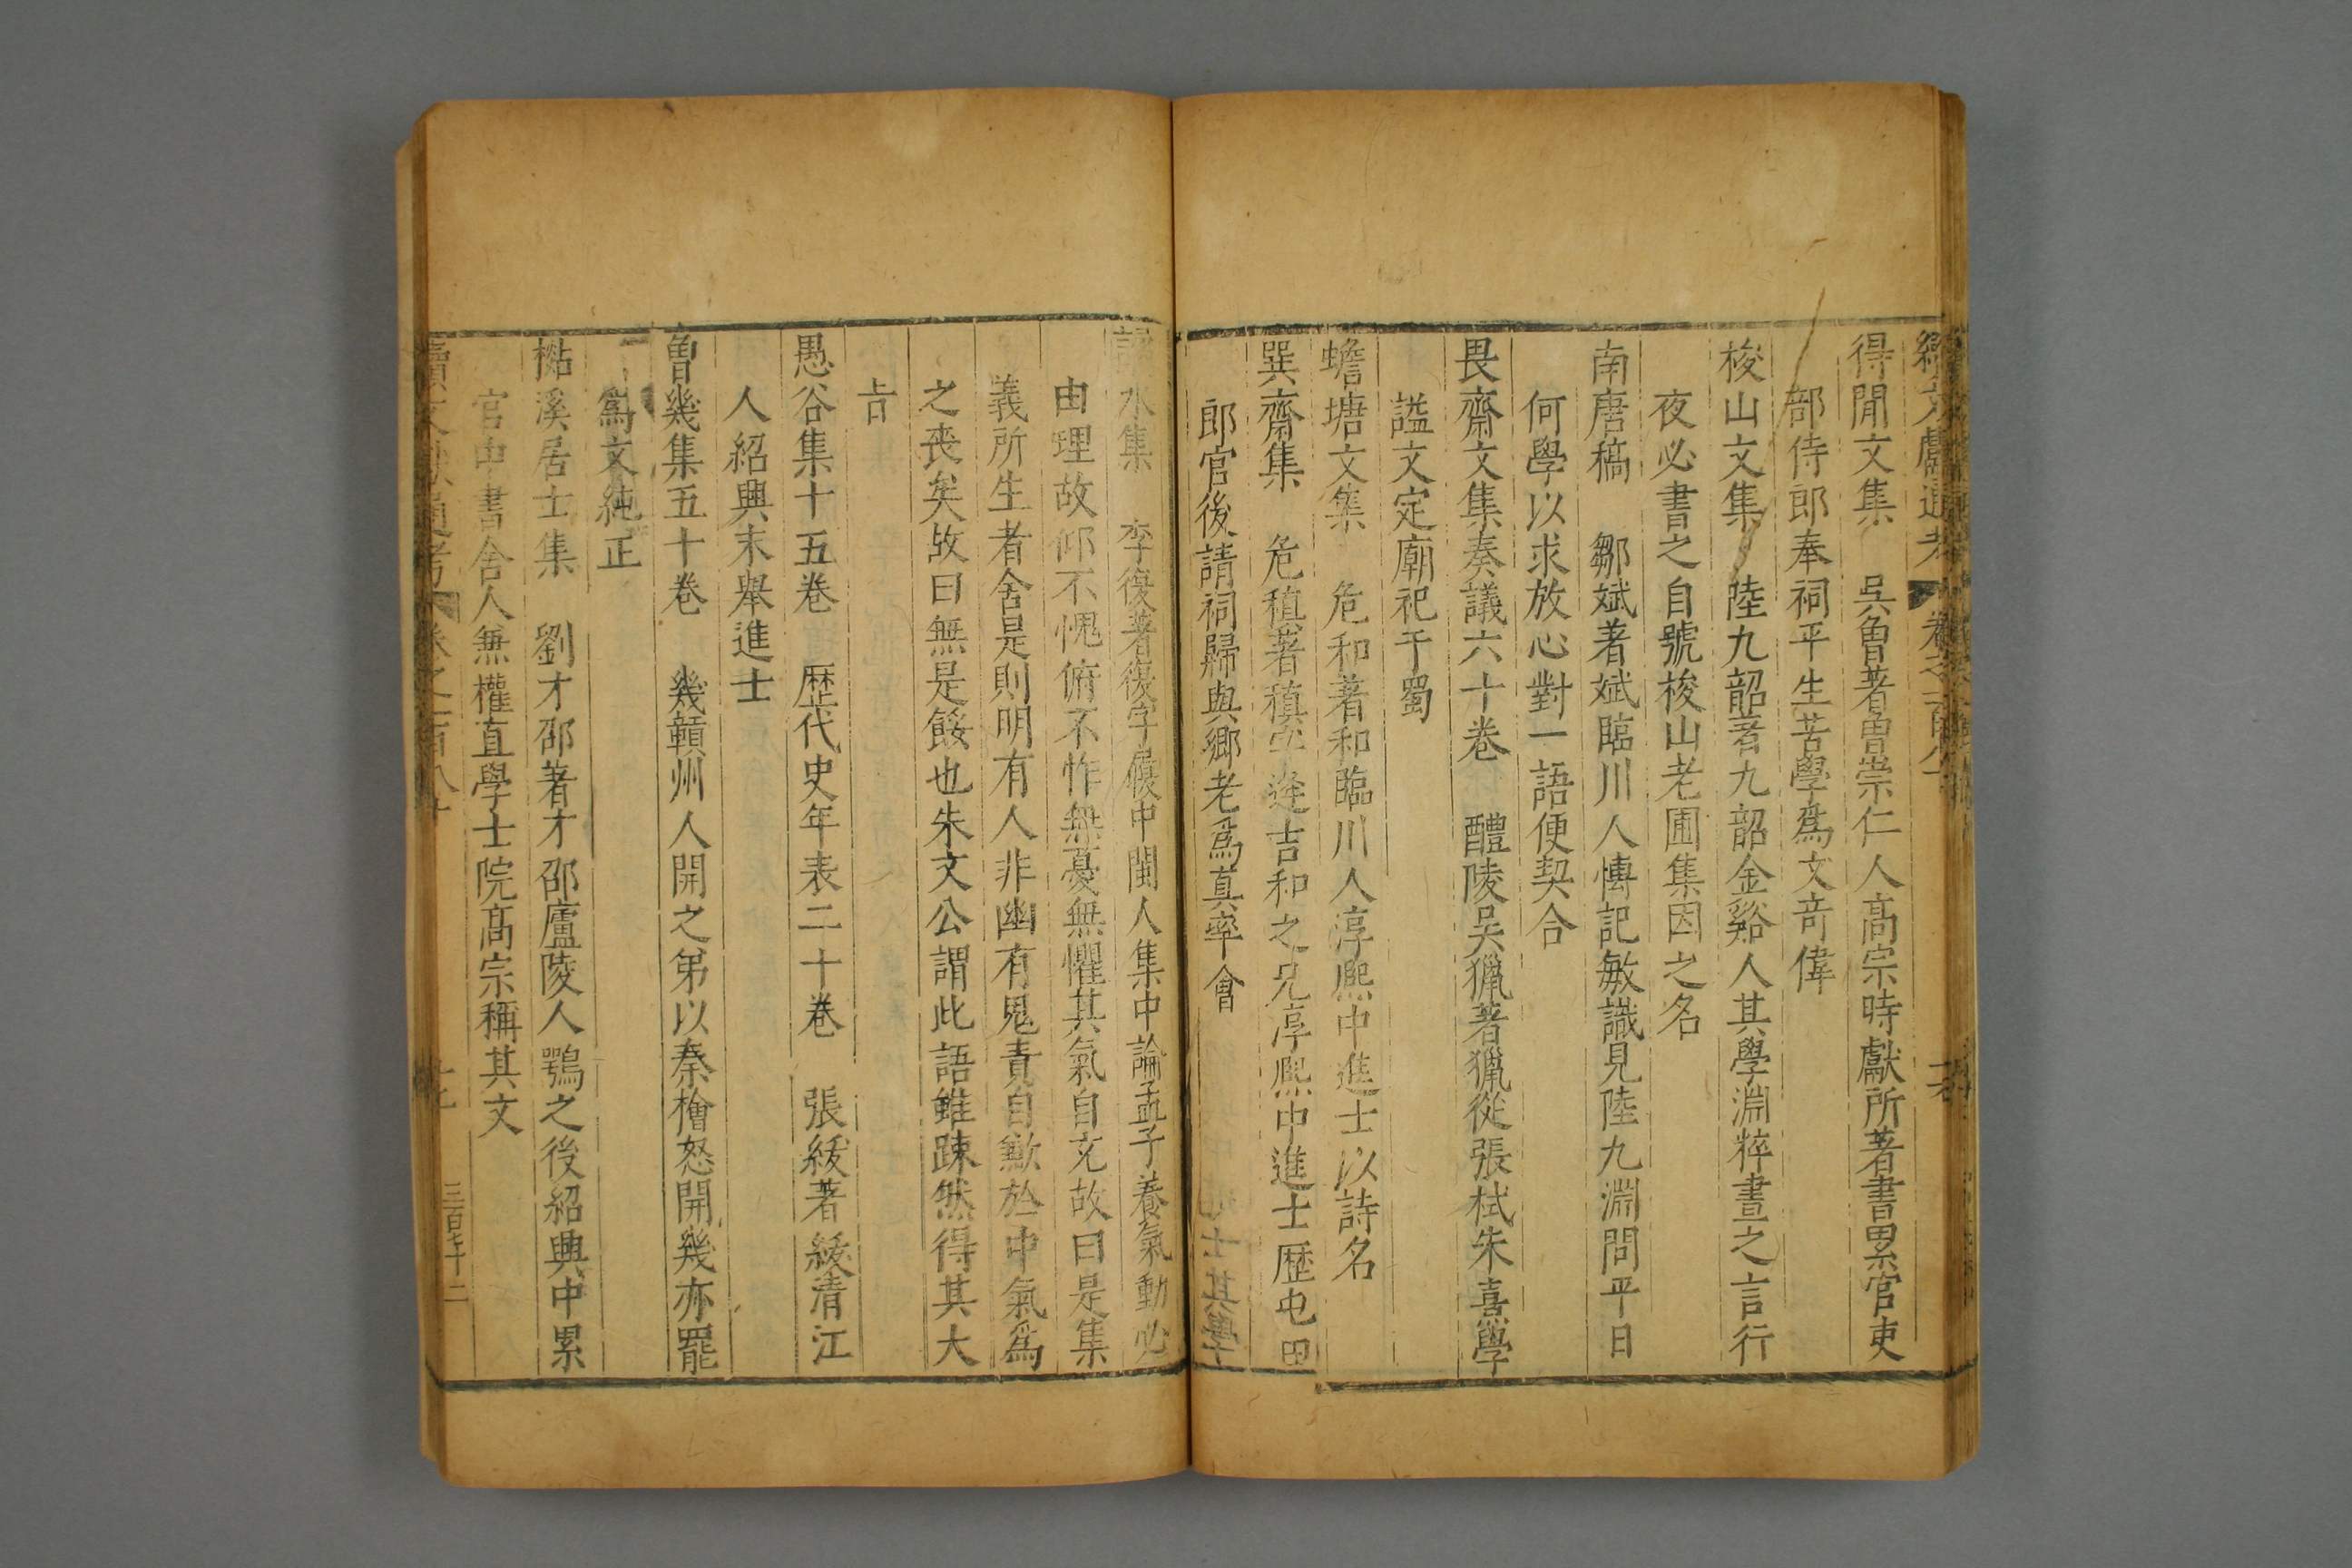 續文獻通考 卷之一百八十
得閒文集 吳魯著魯崇仁人高宗時獻所著書累官吏
部侍郎奉祠平生苦學爲文奇偉
梭山文集 陸九韶著九韶金谿人其學淵粹晝之言行
夜必書之自號梭山老圃集因之名
南唐稿 鄒斌著斌臨川人慱記敏識見陸九淵問平日
何學以求放心對一語便契合
畏齋文集奏議六十卷 醴陵吳獵著獵從張栻朱熹學
謚文定廟祀于蜀
蟾塘文集 危和著和臨川人淳熙中進士以詩名
巽齋集 危稹著稹字逢吉和之兄淳熙中進士歷屯田
郎官後請祠歸與鄉老爲真率會
水集 李復著復字履中閩人集中論孟子養氣動必
由理故仰不愧俯不怍無憂無懼其氣自充故曰是集
義所生者舍是則明有人非幽有鬼責自歉於中氣爲
之丧矣故曰無是餒也朱文公謂此語雖踈然得其大
㫖
愚谷集十五卷 歷代史年表二十卷 張緩著緩清江
人紹興末舉進士
曾幾集五十卷 幾贛州人開之弟以秦檜怒開幾亦罷
爲文純正
檆溪居士集 劉才邵著才邵廬陵人鶚之後紹興中累
官中書舍人無權直學士院高宗稱其文
續文獻通考 卷之一百八十 十七 三百七十二